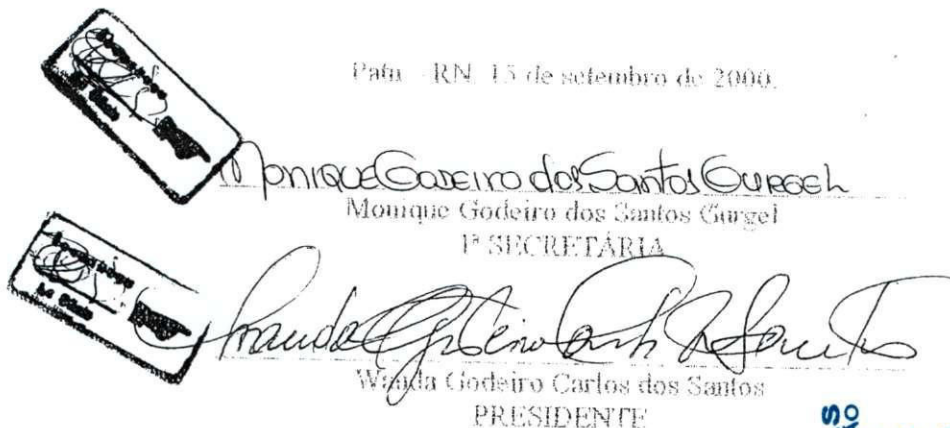 Patu - RN, 15 de setembro de 2000.
Monique Godeiro dos Santos Gurgel
Monique Godeiro dos Santos Gurgel
1ª SECRETÁRIA
Wanda Godeiro Carlos dos Santos
Wanda Godeiro Carlos dos Santos
PRESIDENTE